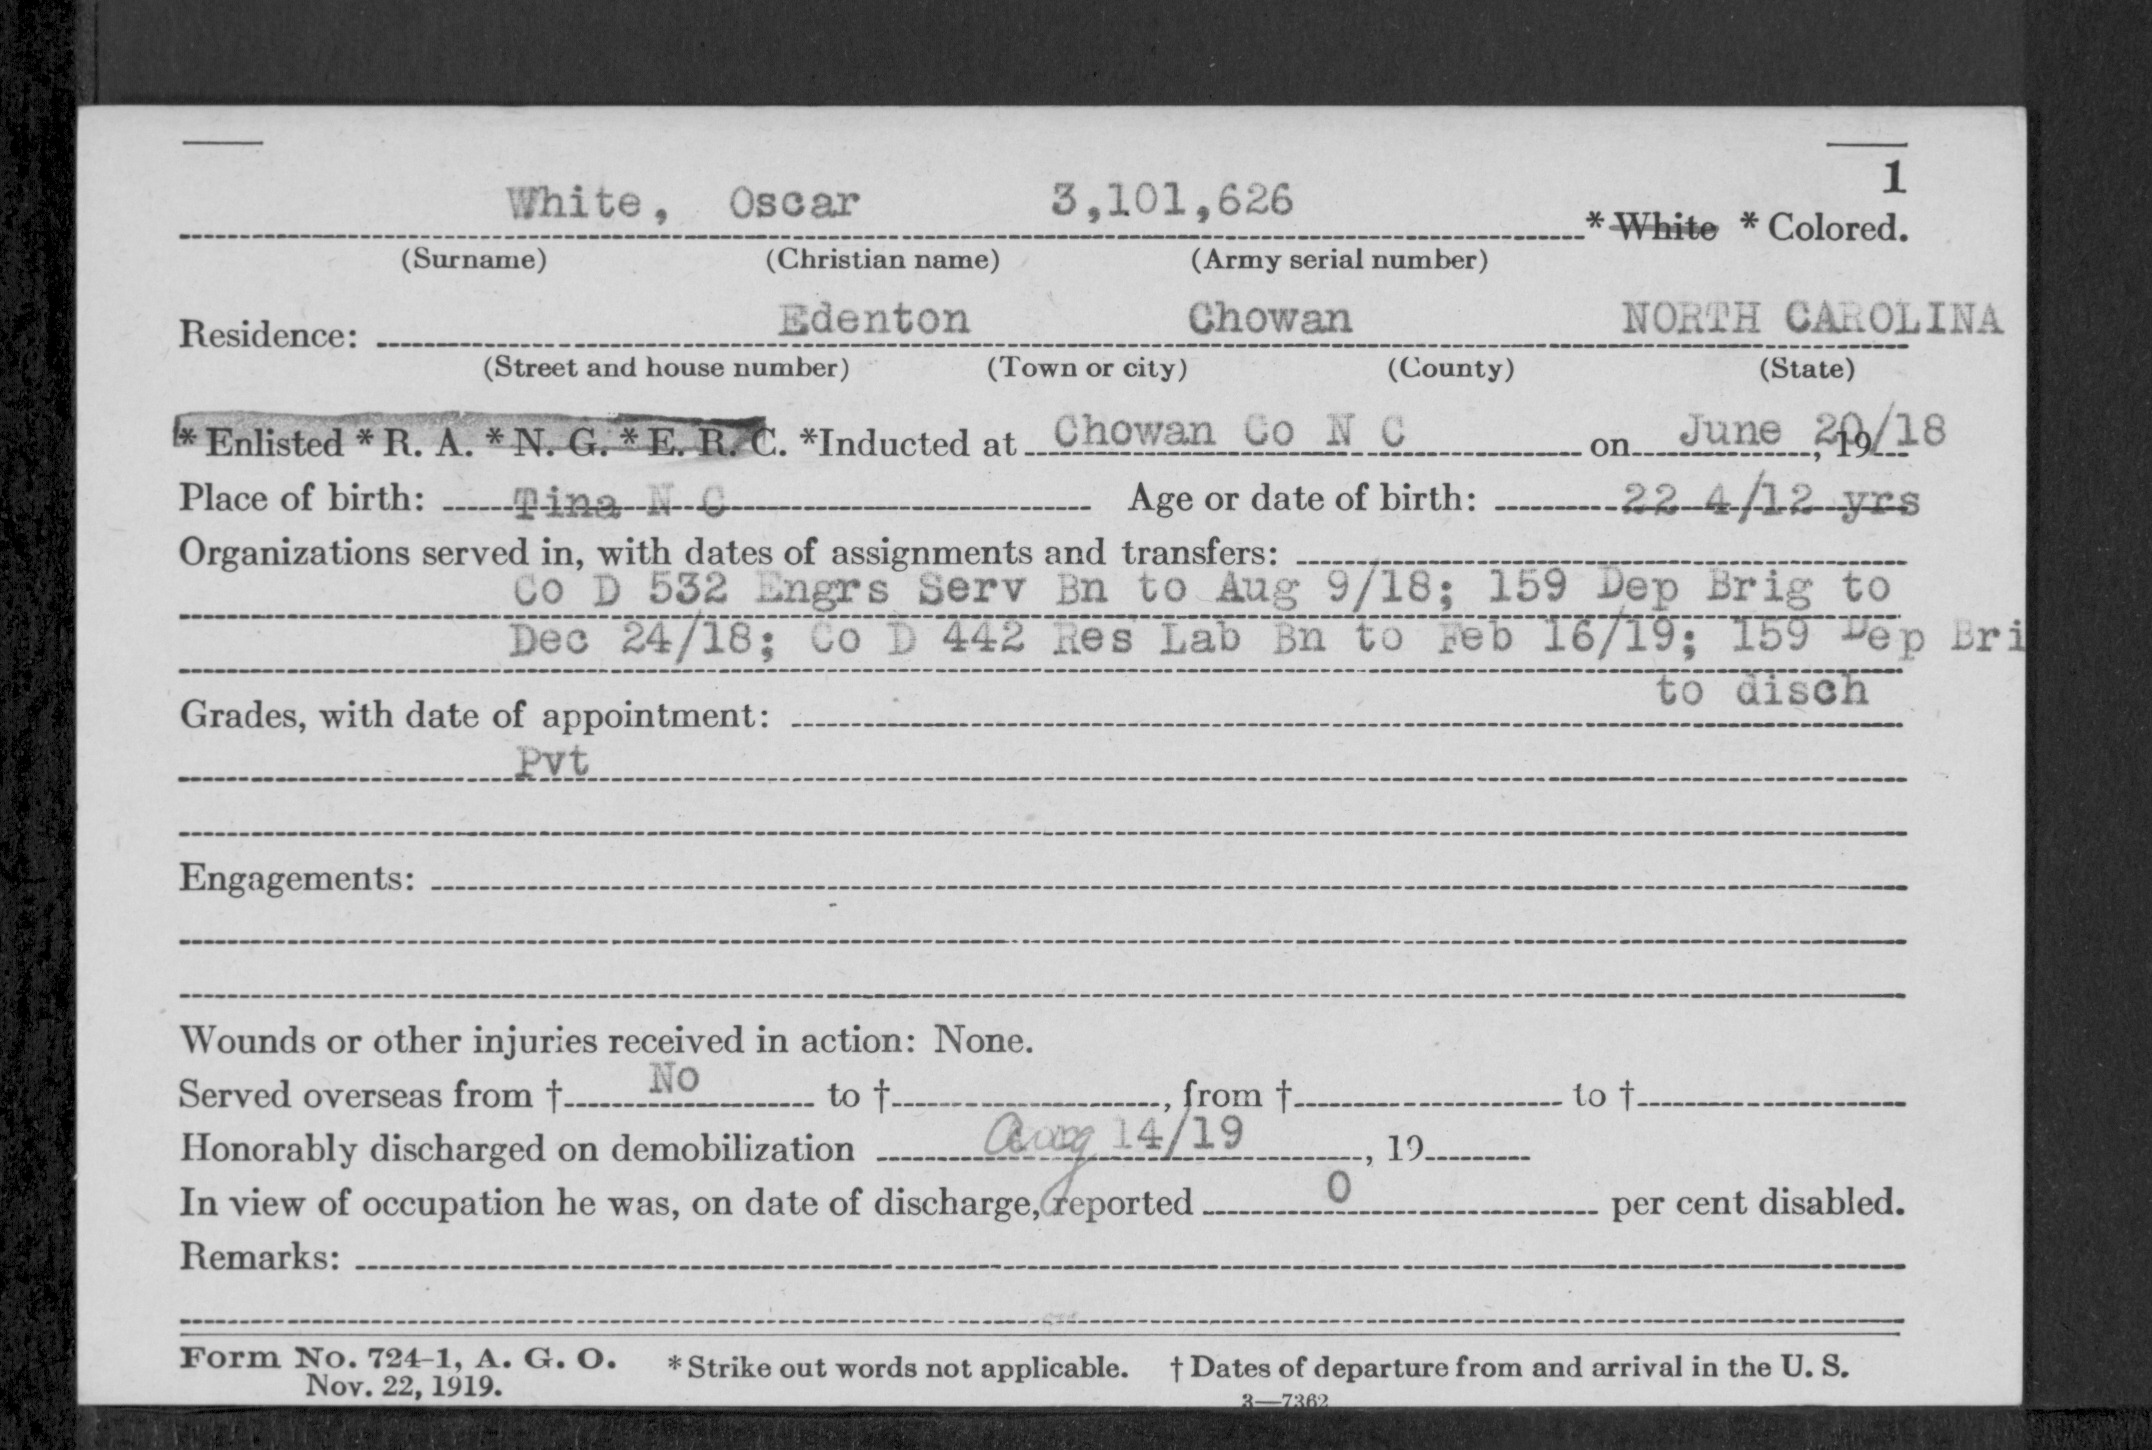 1
White, Oscar 3,101,626 * White * Colored.
(Surname) (Christian name) (Army serial number)
Residence: Edenton Chowan NORTH CAROLINA
(Street and house number) (Town or city) (County) (State)
* Enlisted * R. A. * N. G. * E. R. C. *Inducted at Chowan Co N C on June 20/18, 19
Place of birth: Tina N C Age or date of birth: 22 4/12 yrs
Organizations served in, with dates of assignments and transfers:
Co D 532 Engrs Serv Bn to Aug 9/18; 159 Dep Brig to
Dec 24/18; Co D 442 Res Lab Bn to Feb 16/19; 159 Dep Bri
to disch
Grades, with date of appointment:
Pvt
Engagements:
Wounds or other injuries received in action: None.
Served overseas from † No to †, from † to †
Honorably discharged on demobilization Aug 14/19, 19
In view of occupation he was, on date of discharge, reported 0 per cent disabled.
Remarks:
Form No. 724-1, A. G. O. * Strike out words not applicable. † Dates of departure from and arrival in the U. S.
Nov. 22, 1919.
3—7362